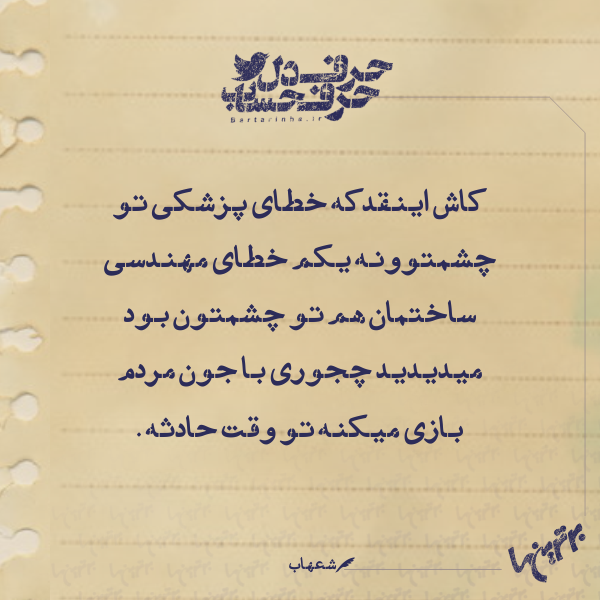 حرف دل
حرف حساب
Bartarinha.ir
کاش اینقدکه خطای پزشکی تو
چشمتوونه یکم خطای مهندسی
ساختمان هم تو چشمتون بود
میدیدید چجوری با جون مردم
بازی میکنه تو وقت حادثه.
شعهاب
برترین‌ها